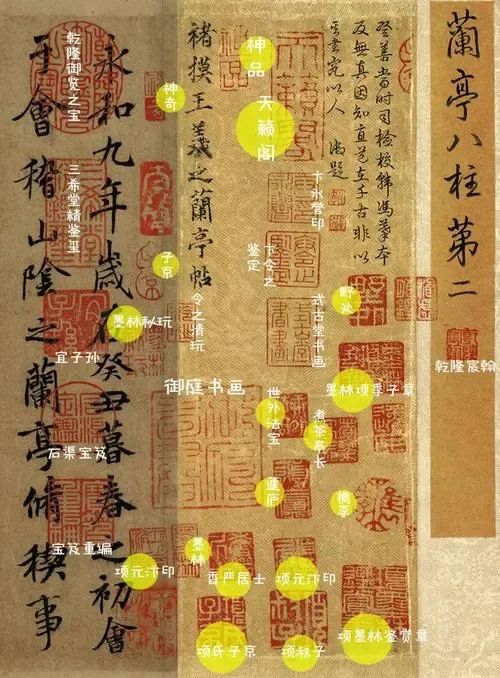 蘭亭八柱第二
乾隆宸翰
登善當時司檢校韓馮摹本
反無真因知直道在千古非以
究以人
褚摸王羲之蘭亭帖
永和九年歲在癸丑暮春之初會
于會稽山陰之蘭亭脩稧事
神品
天籁阁
神奇
卞永誉印
卞令之
鉴定
令之清玩
式古堂书画
墨林项季子章
世外法宝
煮茶亭长
御庭书画
槜李
子京
墨林秘玩
墨林
香严居士
项元汴印
项元汴印
项氏子京
项叔子
项墨林鉴赏章
乾隆御览之宝
三希堂精鉴玺
宜子孙
石渠宝笈
宝笈重编